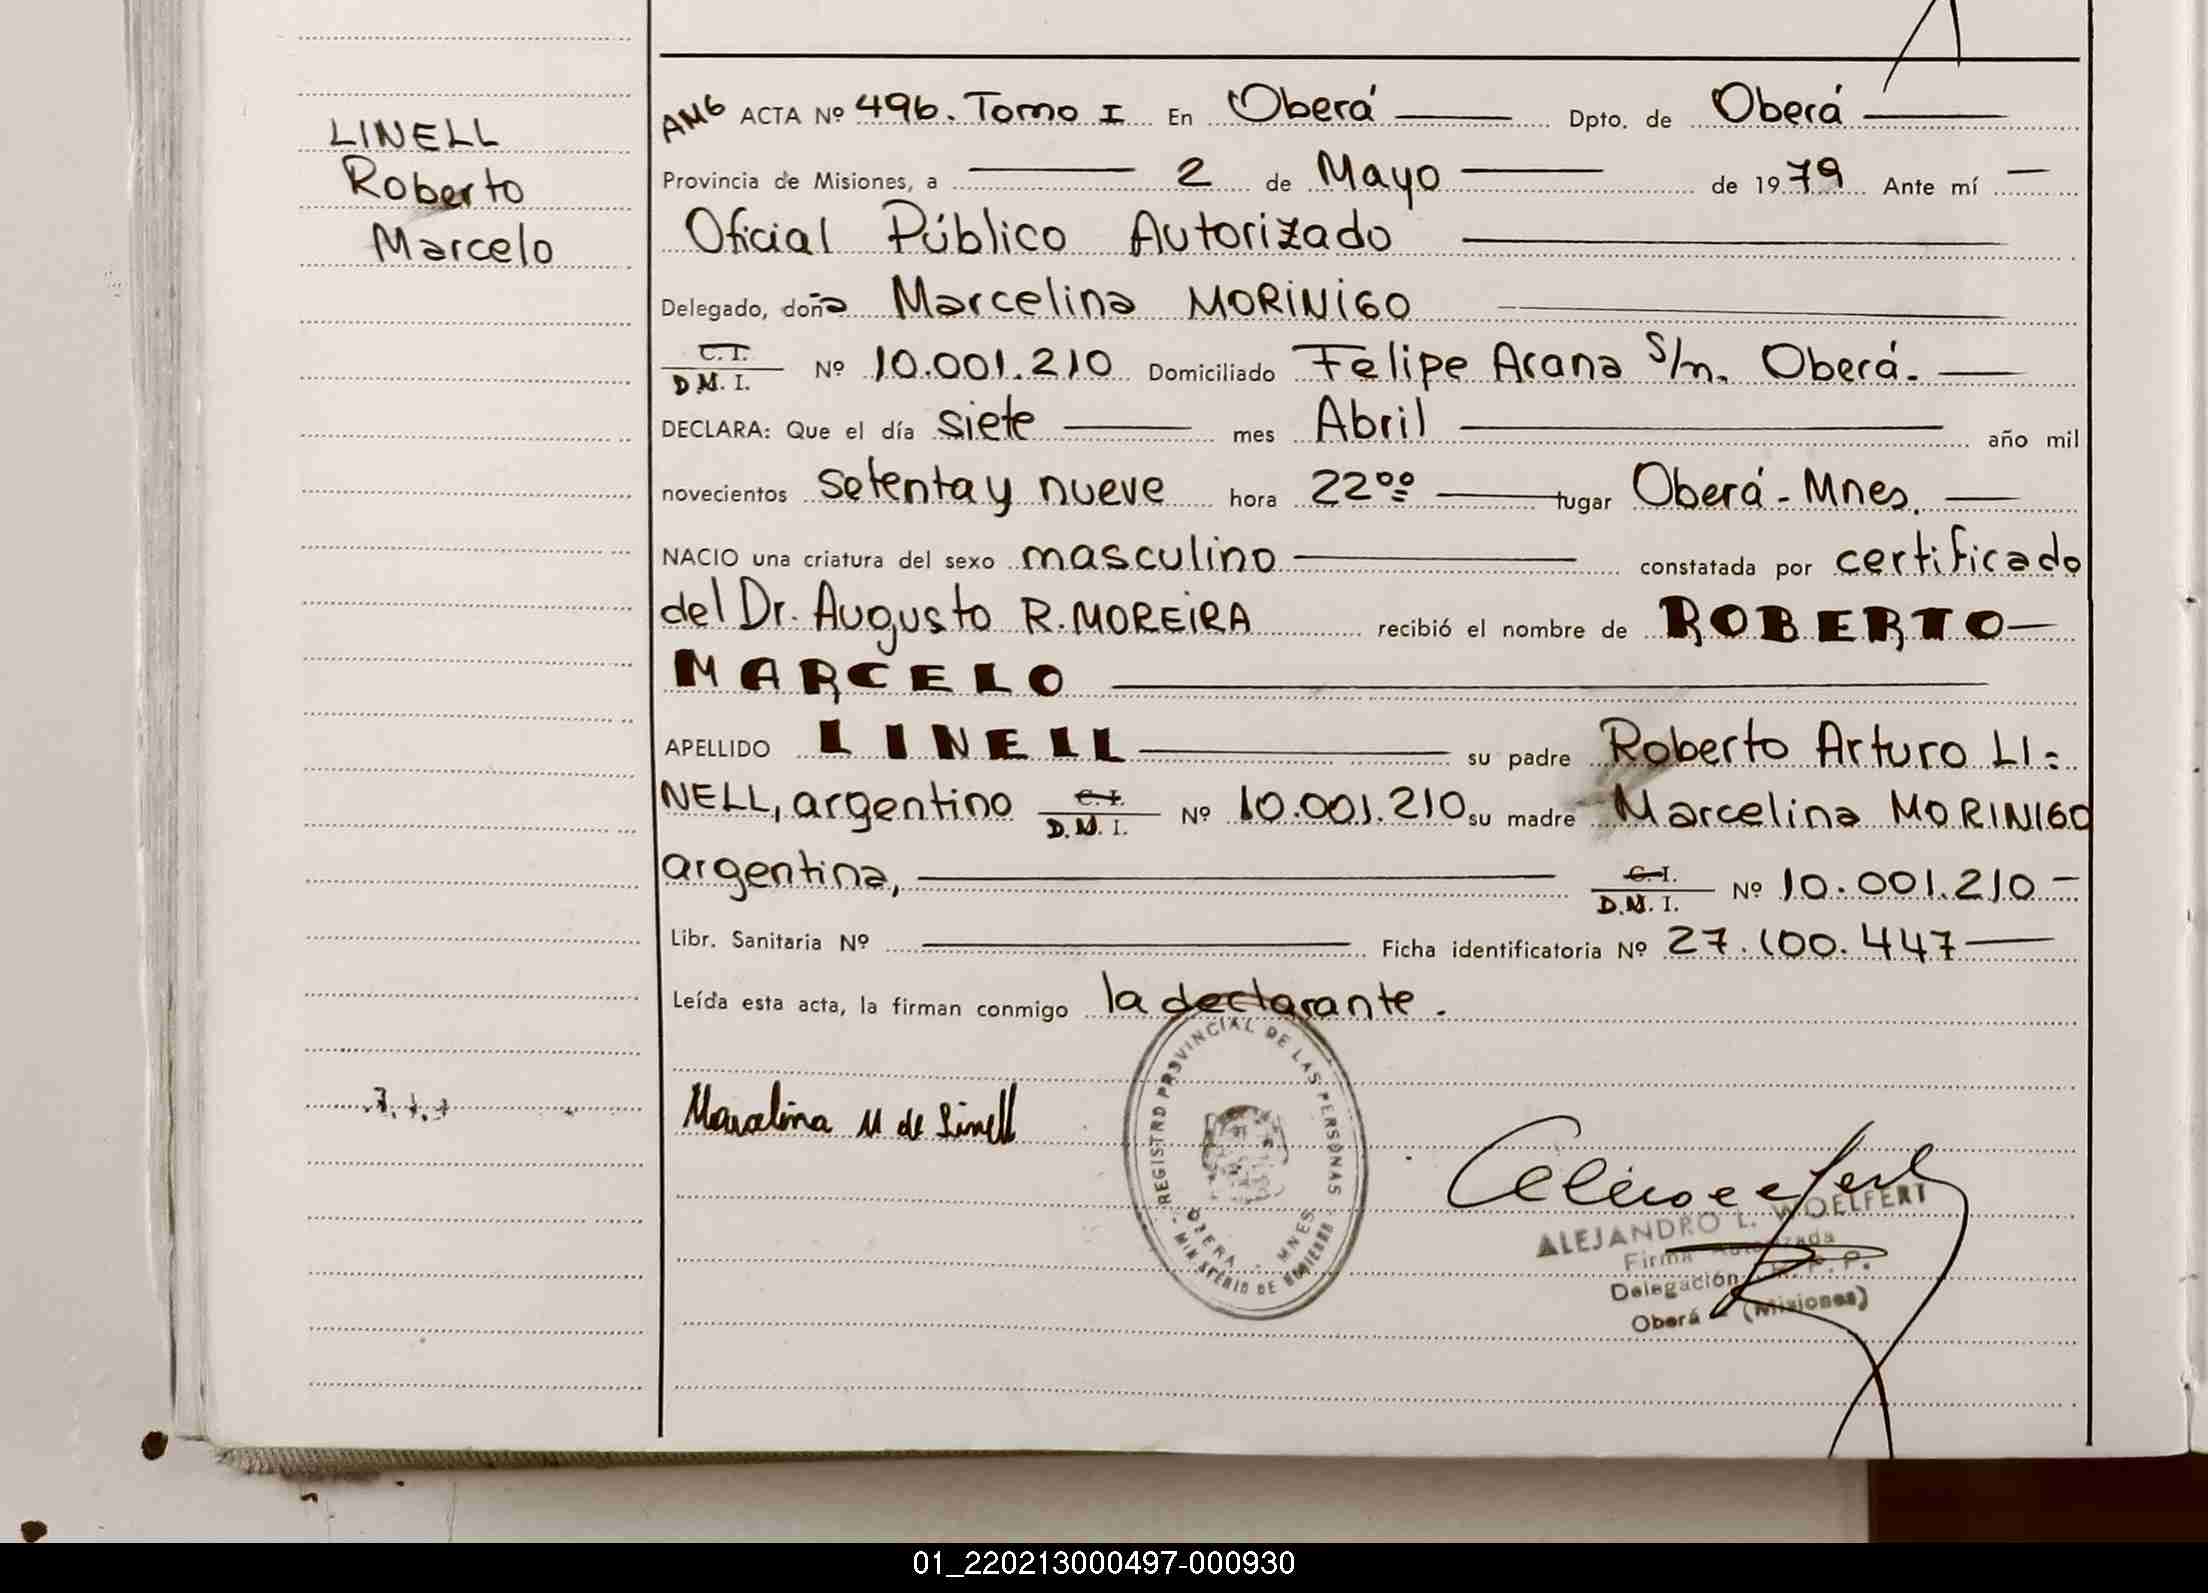 LINELL
Roberto
Marcelo
AMG ACTA Nº 496. Tomo I En Oberá Dpto. de Oberá
Provincia de Misiones, a 2 de Mayo de 1979 Ante mí
Oficial Público Autorizado
Delegado, doña Marcelina MORINIGO
C.I.
D.N.I. Nº 10.001.210 Domiciliado Felipe Arana s/n. Oberá.
DECLARA: Que el día siete mes Abril año mil
novecientos setenta y nueve hora 22ºº lugar Oberá - Mnes.
NACIO una criatura del sexo masculino constatada por certificado
del Dr. Augusto R. MOREIRA recibió el nombre de ROBERTO
MARCELO
APELLIDO LINELL su padre Roberto Arturo LI=
NELL, argentino C.I. D.N.I. Nº 10.001.210 su madre Marcelina MORINIGO
argentina, C.I. D.N.I. Nº 10.001.210
Libr. Sanitaria Nº Ficha identificatoria Nº 27.100.447
Leída esta acta, la firman conmigo la declarante.
Marcelina M de Linell
REGISTRO PROVINCIAL DE LAS PERSONAS
OBERA - MNES
MINISTERIO DE GOBIERNO
ALEJANDRO L. WOELFERT
Firma Autorizada
Delegación R.P.P.
Oberá - (Misiones)
01_220213000497-000930